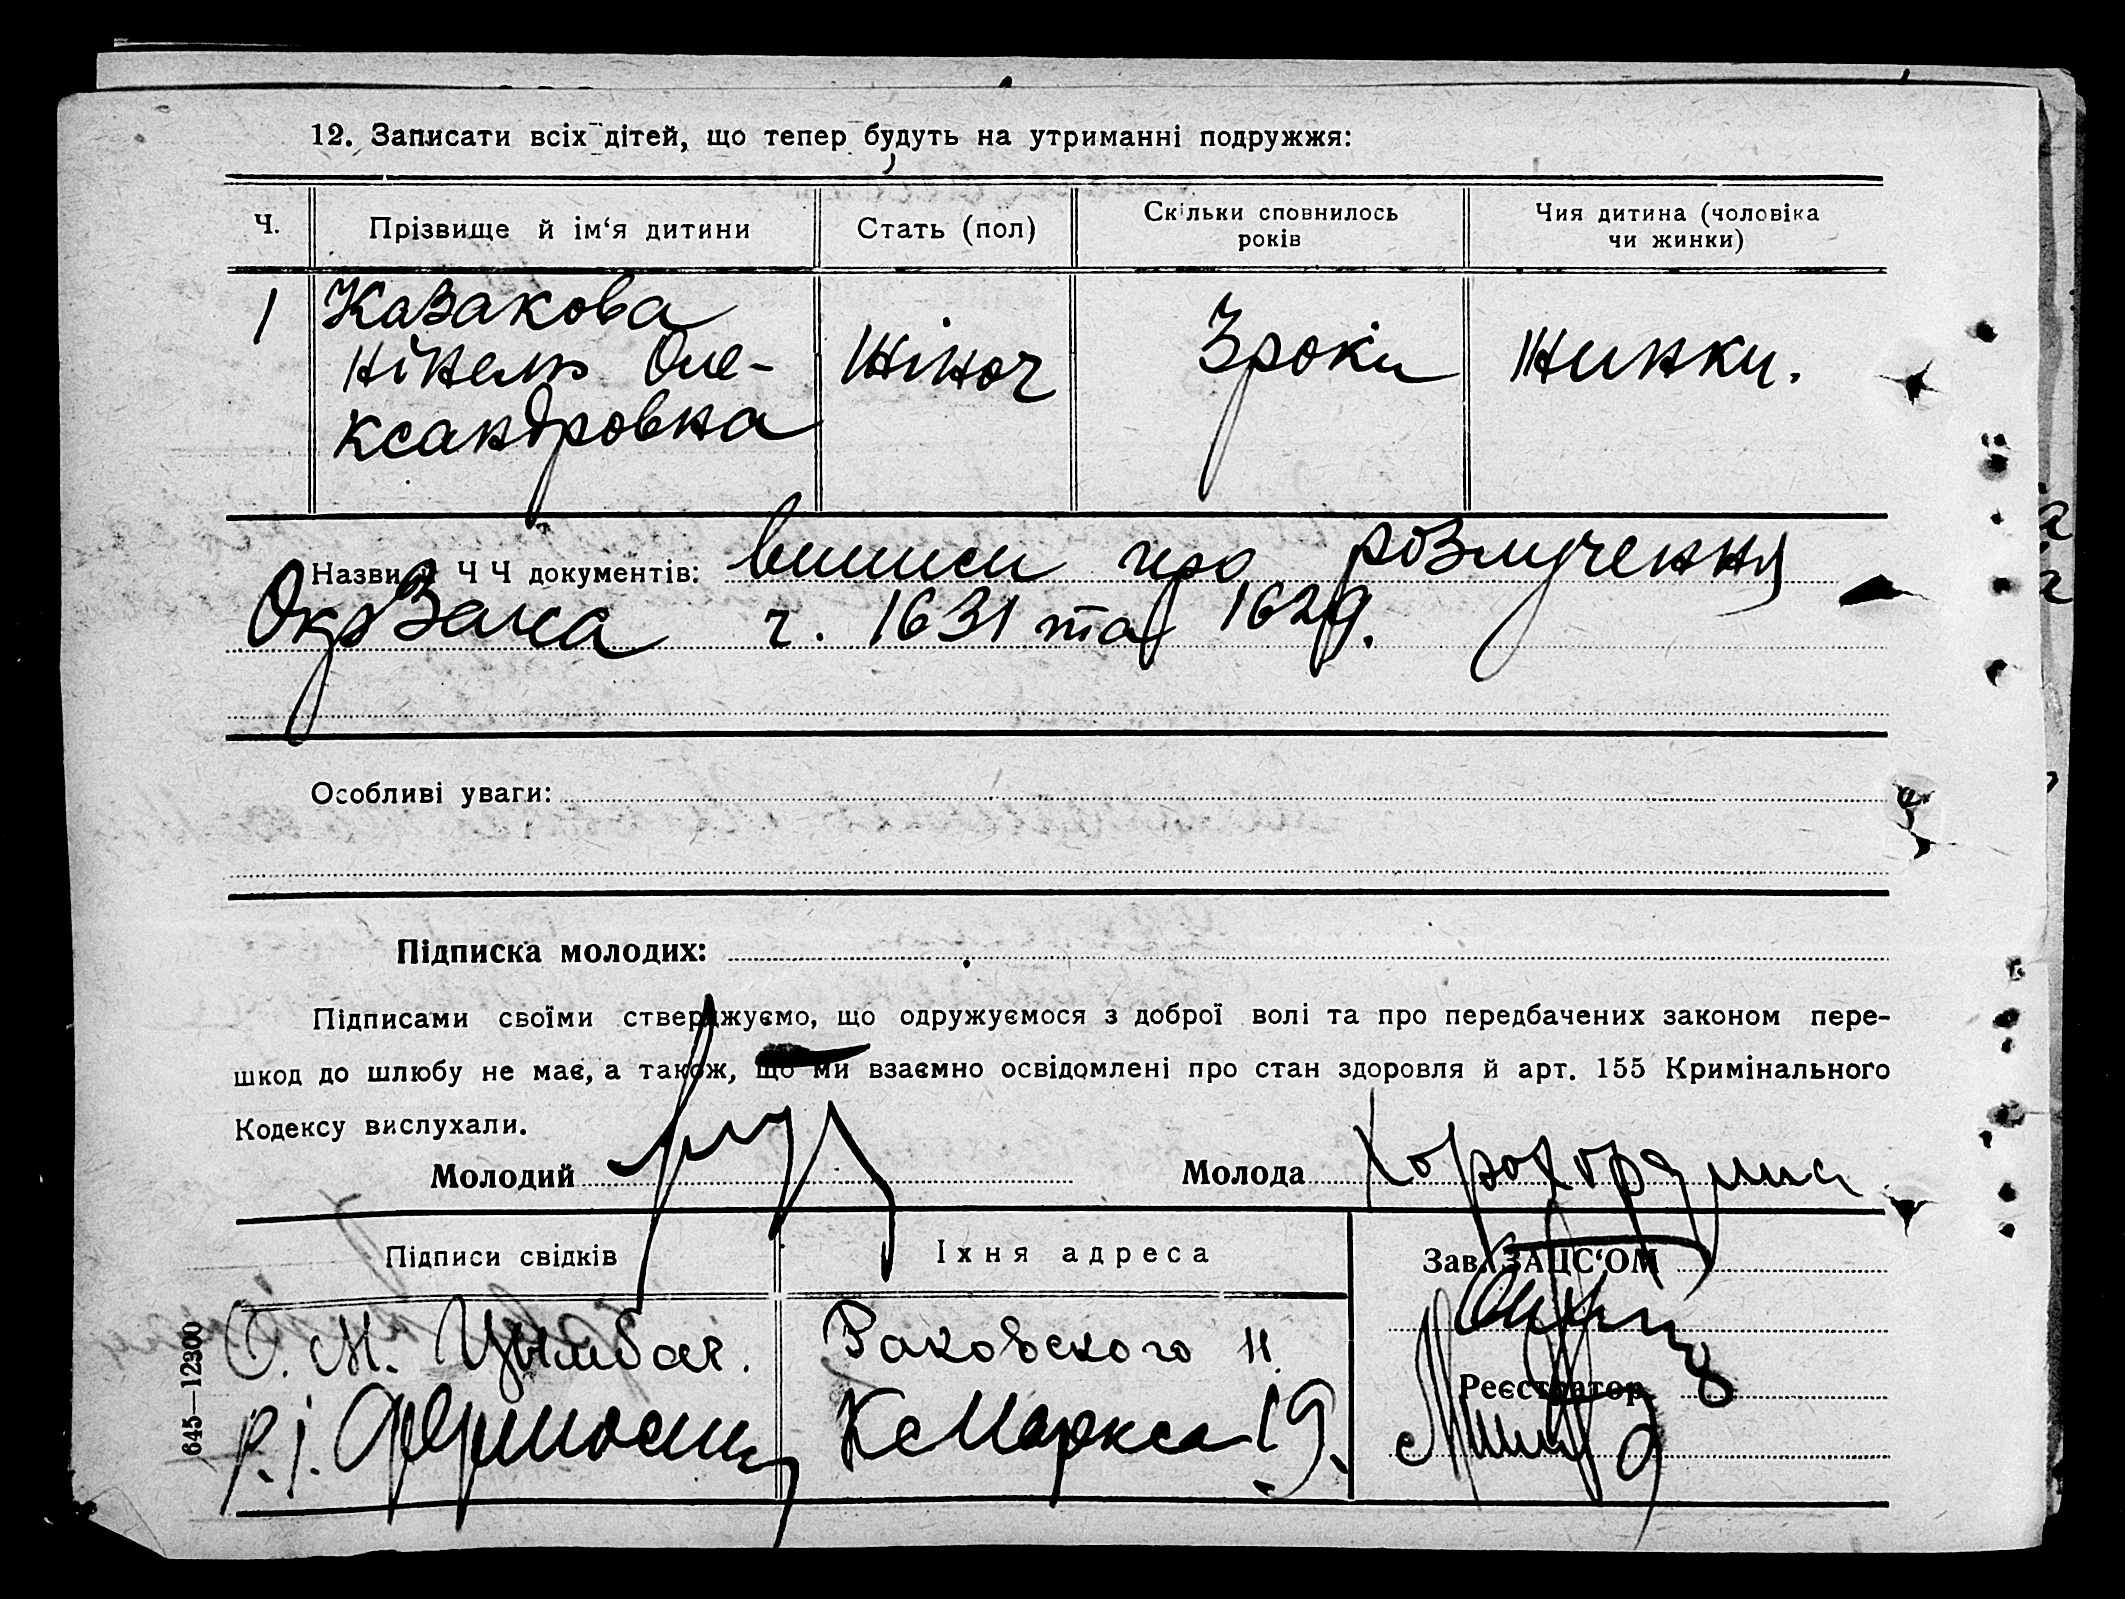 12. Записати всіх дітей, що тепер будуть на утриманні подружжя:
Ч. Прізвище й ім‘я дитини Стать (пол) Скільки сповнилось років Чия дитина (чоловіка чи жинки)
1 Казакова Жіноч 3 роки жинки.
Нінель Оле-
ксандровна
Назви й Ч Ч документів: виписи про розлучення
ОкрЗагса ч. 1631 та 1629.
Особливі уваги:
Підписка молодих:
Підписами своїми стверджуємо, що одружуємося з доброї волі та про передбачених законом пере-
шкод до шлюбу не має, а також, що ми взаємно освідомлені про стан здоровля й арт. 155 Кримінального
Кодексу вислухали.
Молодий Молода
Підписи свідків Їхня адреса Зав. ЗАЦС‘ОМ
О. М. Цымбал. Раковского 11.
Реєстратор
Р. І. К. Маркса 19.
645—12300